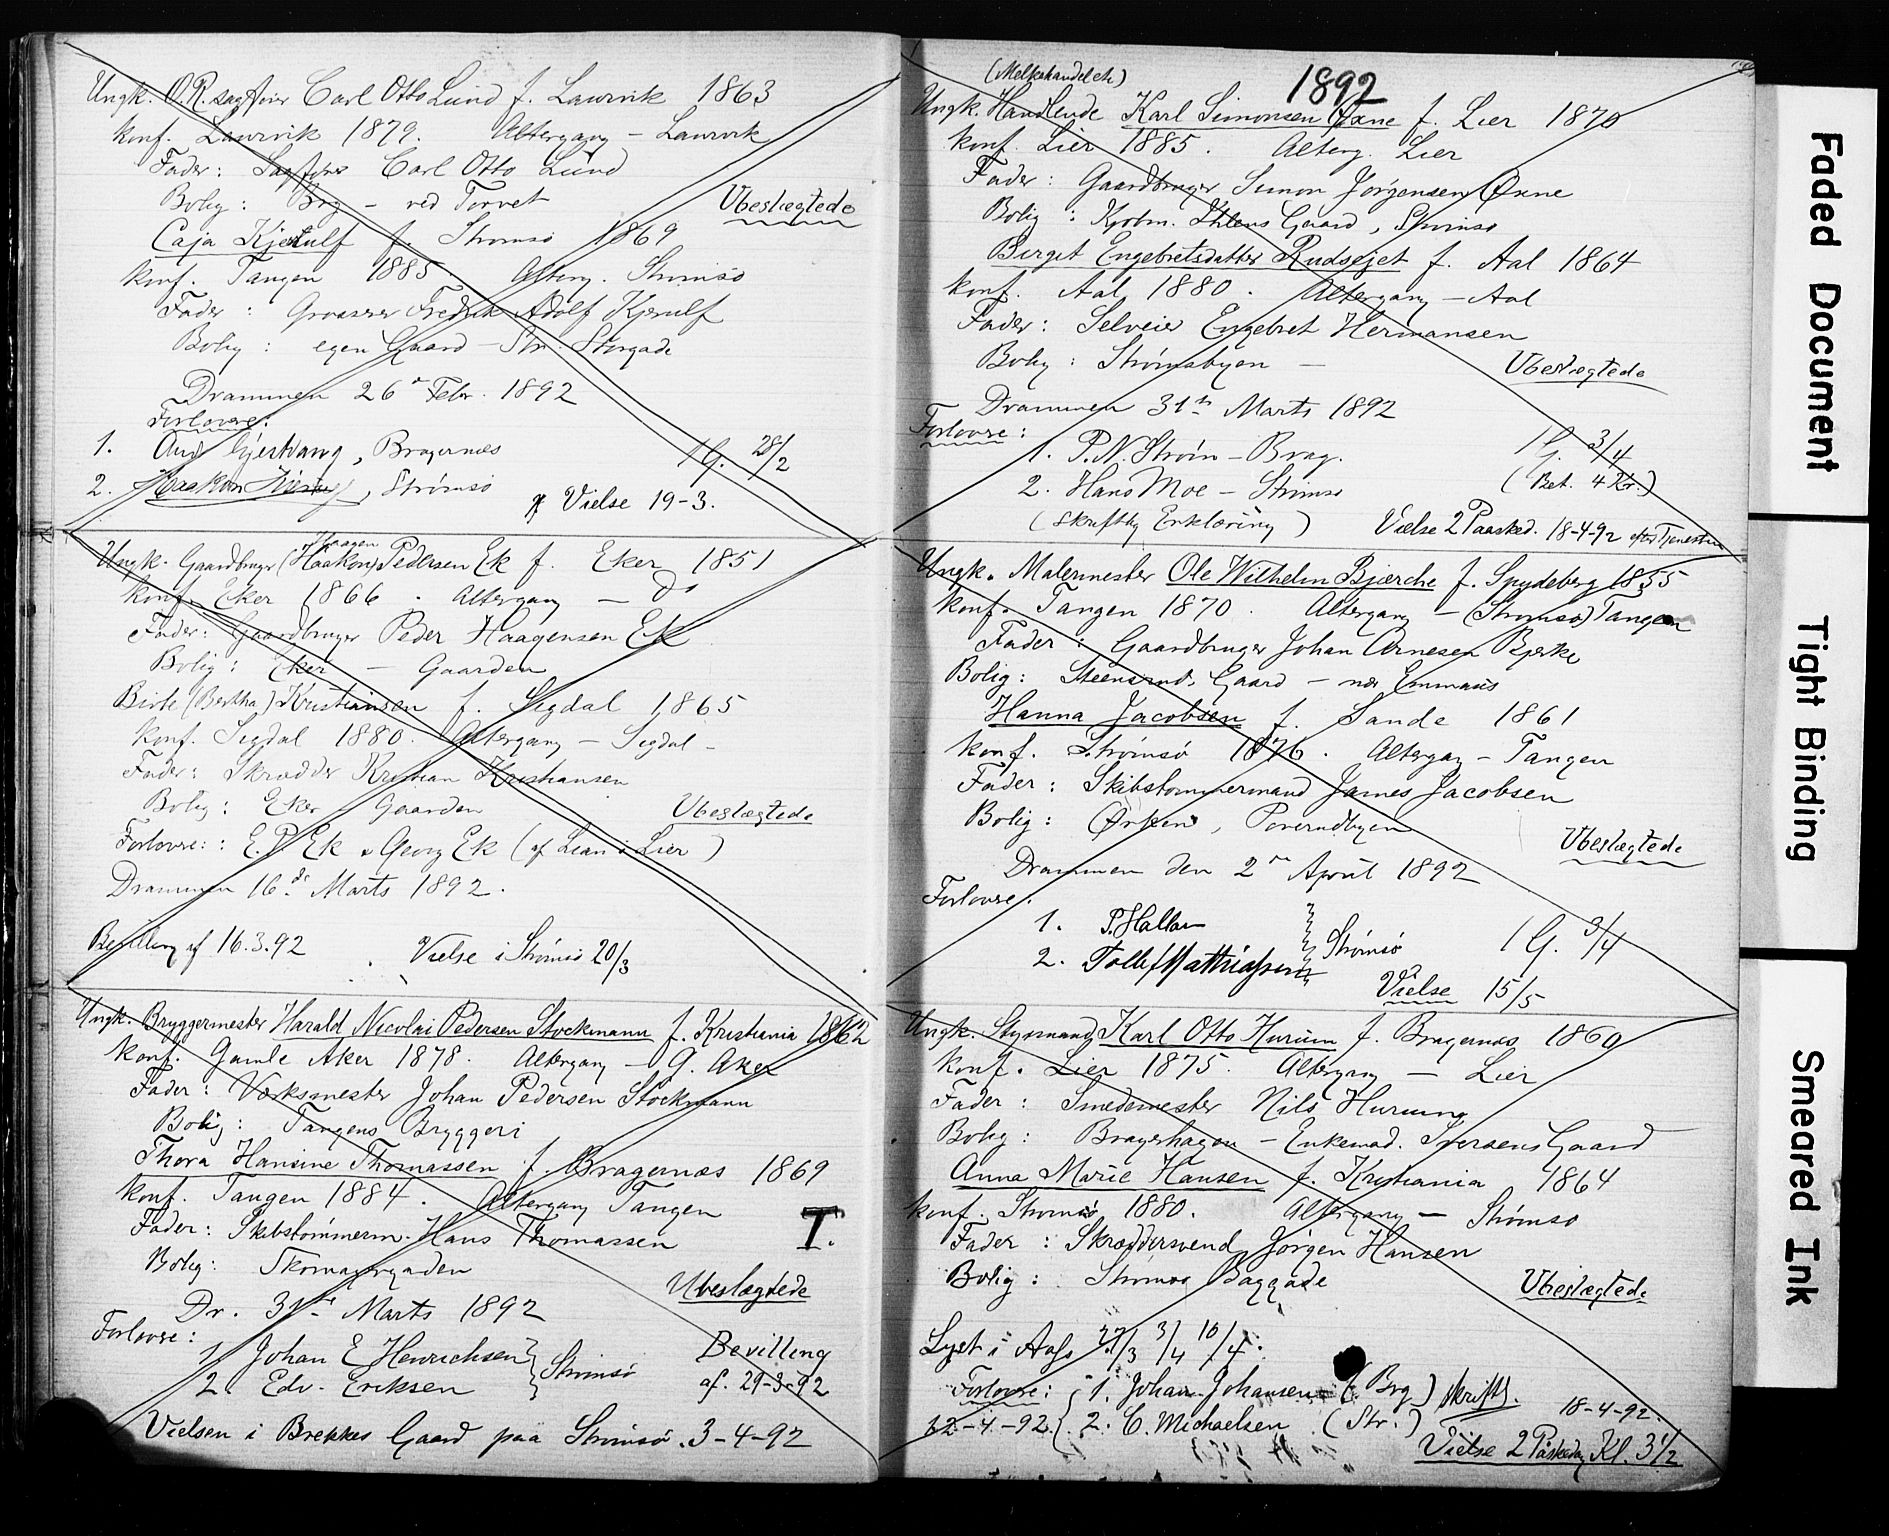 Ungk. O.R.sagfører Carl Otto Lund f. Laurvik 1863
Konf. Laurvik 1879. Altergang - Laurvik
Fader: Sagfører Carl Otto Lund
Bolig: Brg - ved Torvet
Ubeslægtede
Caja Kjerulf f. Strømsø 1869
Konf. Tangen 1885. Alterg. Strømsø
Fader: Grosserer Fredrik Adolf Kjerulf
Bolig: egen Gaard - Str. Storgade
Drammen 26 Febr. 1892
Forlovere:
1. And. Gjerhaug, Bragernæs
1 G. 28/2
2. Haakon, Strømsø
Vielse 19-3.
Ungk. Gaardbruger (Haakon) Haagen Pedersen Ek f. Eker 1851
Konf. Eker 1866. Altergang - Do
Fader: Gaardbruger Peder Haagensen Ek
Bolig: Eker - Gaarden
Birte (Bertha) Kristiansen f. Sigdal 1865
Konf. Sigdal 1880. Altergang - Sigdal -
Fader: Skrædder Kristian Kristiansen
Bolig: Eker Gaarden
Ubeslægtede
Forlovere: E. P. Ek & Georg Ek (af Lian i Lier)
Drammen 16de Marts 1892.
Bevilling af 16.3.92
Vielse i Strømsø 20/3
Ungk. Bryggermester Harald Nicolai Pedersen Stockmann f. Kristiania 1862
Konf. Gamle Aker 1878. Altergang - G. Aker
Fader: Værksmester Johan Pedersen Stockmann
Bolig: Tangens Bryggeri
Thora Hansine Thomassen f. Bragernæs 1869
Konf. Tangen 1884. Altergang Tangen
Fader: Skibstømmerm. Hans Thomassen
T.
Bolig: Skomagergaden
Ubeslægtede
Dr. 31te Marts 1892
Forlovere:
1. Johan E Henrichsen } Strømsø
2. Edv. Eriksen
Bevilling
af. 29-3-92
Vielsen i Brekkes Gaard paa Strømsø. 3-4-92
1892
(Melkehandel etc)
Ungk. Handlende Karl Simonsen Oxne f. Lier 1870
Konf. Lier 1885. Alterg. Lier
Fader: Gaardbruger Simon Jørgensen Øxne
Bolig: Kjøbm. Ihlens Gaard, Strømsø
Berget Engebretsdatter Rudsejet f. Aal 1864
Konf. Aal 1880. Altergang - Aal
Fader: Selveier Engebret Hermansen
Bolig: Strømsbyen -
Ubeslægtede
Drammen 31te Marts 1892
Forlovere:
1. P.N. Strøm - Brag.
1 G. 3/4
2. Hans Moe - Strømsø
(Bet. 4 Kr.)
(Skriftlig Erklæring)
Vielse 2 Paasked. 18-4-92 efter Tjenesten
Ungk. Malermester Ole Wilhelm Bjærche f. Spydeberg 1855
Konf. Tangen 1870. Altergang - (Strømsø) Tangen
Fader: Gaardbruger Johan Arnesen Bjerke
Bolig: Steensruds Gaard - nær Emmaus
Hanna Jacobsen f. Sande 1861
Konf. Strømsø 1876. Altergang - Tangen
Fader: Skibstømmermand James Jacobsen
Bolig: Ørken, Porerudbyen
Ubeslægtede
Drammen den 2 April 1892
Forlovere:
1. P. Hallan
2. Tollef Mathiassen
Strømsø
1 G. 3/4
Vielse 15/5
Ungk. Styrmand Karl Otto Hurum f. Bragernæs 1860
Konf. Lier 1875. Altergang - Lier
Fader: Smedemester Nils Hurum
Bolig: Brageshagen - Enkemad. Iversens Gaard
Anna Marie Hansen f. Kristiania 1864
Konf. Strømsø 1880. Altergang - Strømsø
Fader: Skræddersvend Jørgen Hansen
Bolig: Strømsø Baggade
Ubeslægtede
Lyst i Aas 27/3 3/4 10/4.
Forlovere: 1. Johan Johansen (Brg) skriftl.
18-4-92.
12-4-92 2. C. Michaelsen (Str.)
Vielse 2 Påskedag Kl. 3 1/2
Faded Document
Tight Binding
Smeared Ink